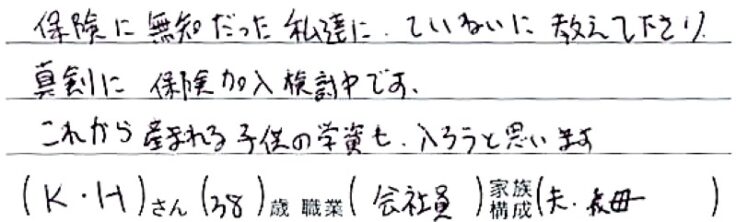 保険に無知だった私達に、ていねいに教えて下さり、
真剣に保険加入検討中です、
これから産まれる子供の学資も、入ろうと思います
(K・H)さん(38)歳 職業(会社員)家族構成(夫、義母)